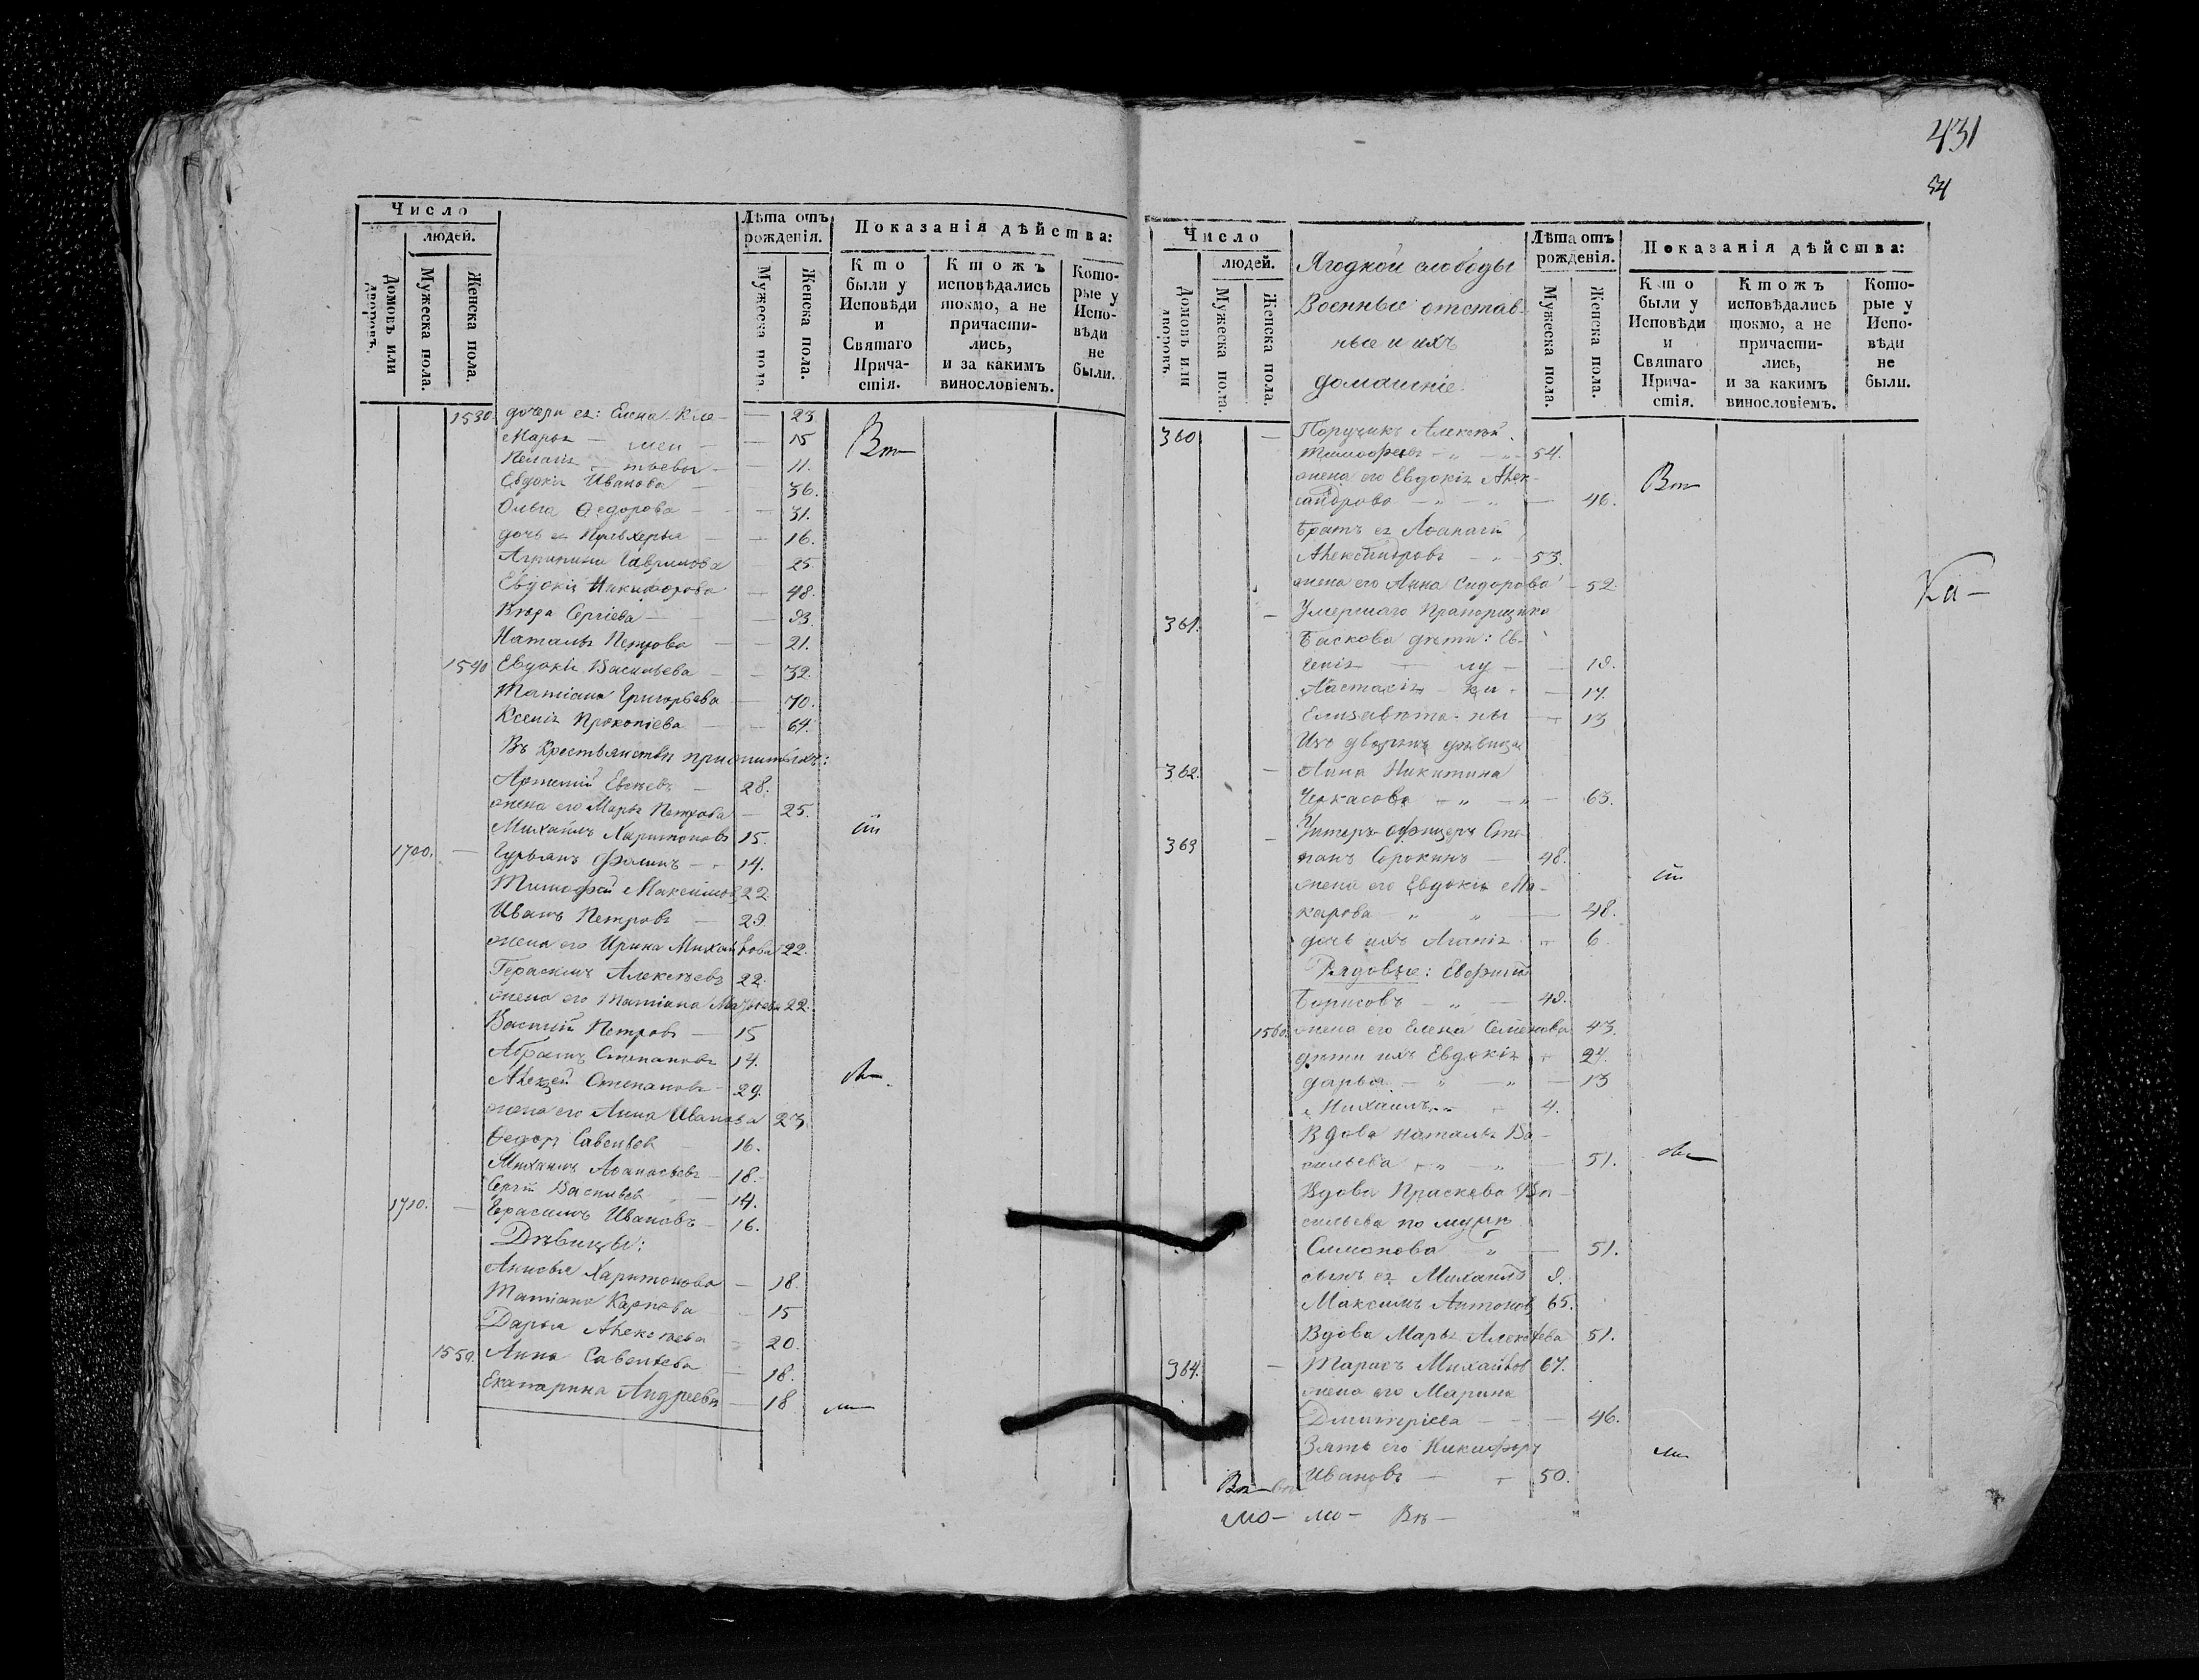 Число
людей.
Домовъ или дворовъ.
Мужеска пола.
Женска пола.
Лѣта отъ рожденія.
Мужеска пола.
Женска пола.
Показанія дѣйства:
Кто были у Исповѣди и Святаго Прича-стія.
Ктожъ исповѣдались токмо, а не причасти-лись, и за какимъ винословіемъ.
Кото-рые у Испо-вѣди не были.
1530. дочери ея: Елена Кле- — 23.
Марья — мен — 15
Пелагія — тьевы — 11.
Евдокія Иванова — 36.
Ольга Ѳедорова — 31.
дочь ея Пульхерья — 16.
Агрипина Гаврилова — 25.
Евдокія Никифорова — 48.
Вѣра Сергіева — 33.
Наталья Петрова — 21.
1540 Евдокія Васильева — 32.
Татіана Григорьева — 70.
Ксенія Прокопіева — 64.
Въ крестьянствѣ
Артемій Евсѣевъ — 28.
жена его Марья Петрова — 25.
Михаилъ Харитоновъ 15.
1700. — Гурьянъ Ѳоминъ — 14.
Тимофей Максимовъ 22.
Иванъ Петровъ — 23.
жена его Ирина Михайлова 22.
Герасимъ Алексѣевъ 22.
жена его Татіана 22.
Василій Петровъ — 15
Абрамъ Степановъ 14.
Алексѣй Степановъ — 29.
жена его Анна Иванова 23
Ѳедоръ Савельевъ 16.
Михаилъ Аѳанасьевъ — 18.
Сергѣй Васильевъ — 14.
1710. — Герасимъ Ивановъ — 16.
Дѣвицы:
Анисья Харитонова — 18.
Татіана Карпова — 15
Дарья Алексѣева — 20.
1550. Анна Савельева — 18.
Екатарина Андреева — 18
431
54
Число
людей.
Домовъ или дворовъ.
Мужеска пола.
Женска пола.
Ягодной слободы
Военные отстав-
ные и ихъ
домашніе.
Лѣта отъ рожденія.
Мужеска пола.
Женска пола.
Показанія дѣйства:
Кто были у Исповѣди и Святаго Прича-стія.
Ктожъ исповѣдались токмо, а не причасти-лись, и за какимъ винословіемъ.
Кото-рые у Испо-вѣди не были.
360 — Поручикъ Алексѣй
Тимофеевъ — 54.
жена его Евдокія Алек-
сандрова — 46.
Братъ ея Аѳанасій
Александровъ — 53.
жена его Анна Сидорова — 52.
361. — Умершаго Прапорщика
Баскова дѣти: Ев-
генія — 18.
Настасія — 17.
Елизавета — 13
Изъ дворянъ дѣвица
362. — Анна Никитина
Черкасова — 63.
363 — Унтеръ-офицеръ Сте-
панъ Сорокинъ — 48.
жена его Евдокія Ма-
карова — 48.
дочь ихъ Агапія — 6
Рядовые: Евфимій
Борисовъ — 48.
1560. жена его Елена Семенова 43.
дѣти ихъ Евдокія — 24.
Дарья — 13
Михаилъ — 4.
Вдова Наталья Ва-
сильева — 51.
Вдова Праскева Ва-
сильева по мужѣ
Симонова — 51.
сынъ ея Михаилъ 8.
Максимъ Антоновъ 65.
Вдова Марья Алексѣева 51.
364. — Тарасъ Михайловъ 67.
жена его Марина
Дмитріева — 46.
Зять его Никифоръ
Ивановъ — 50.